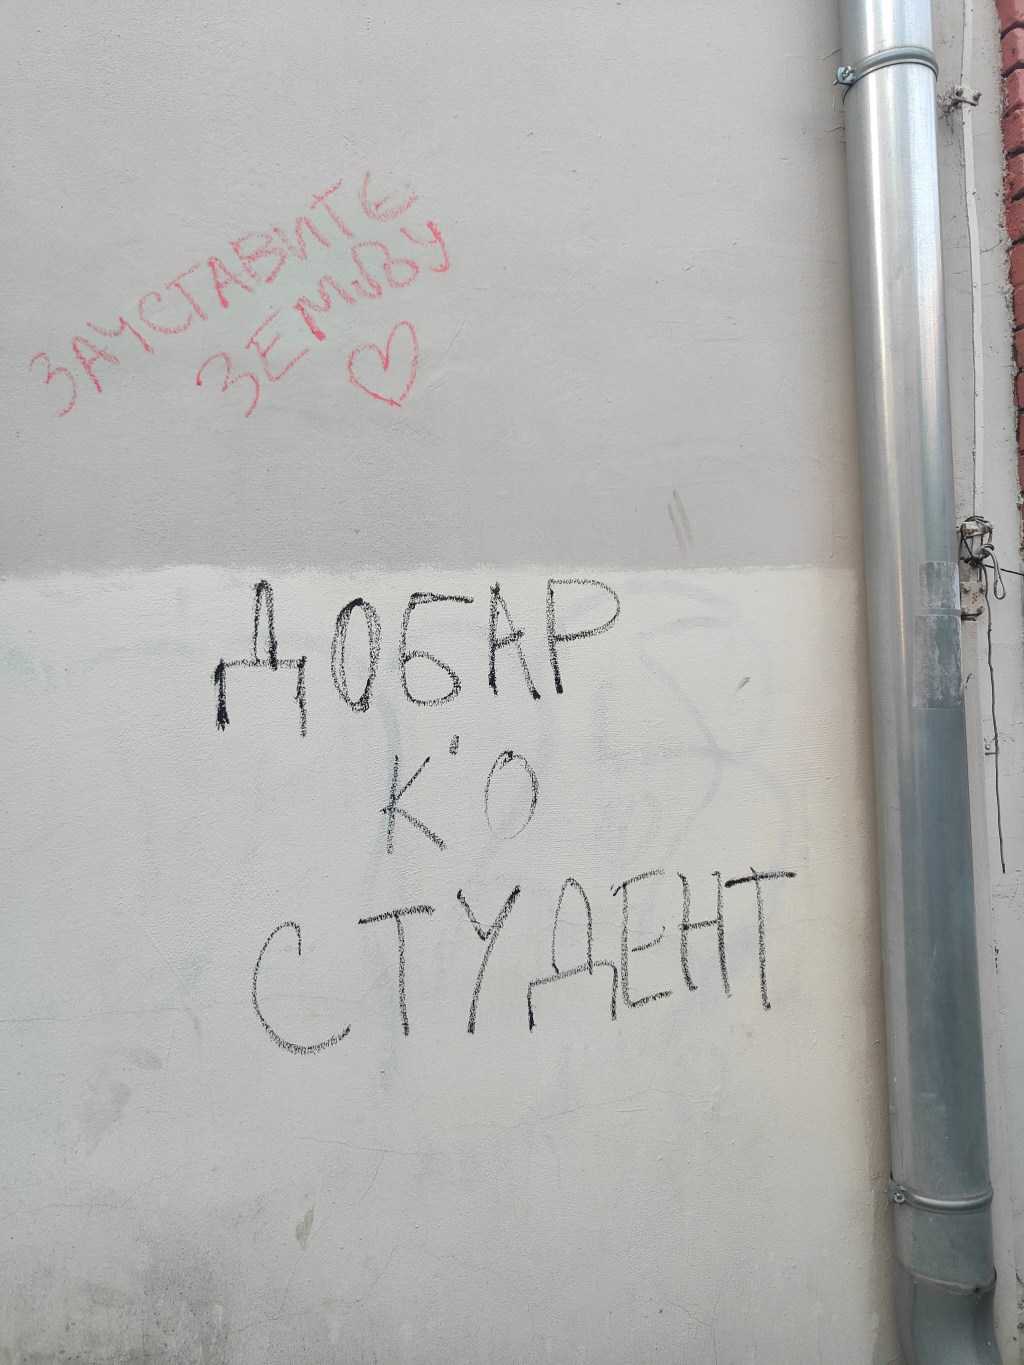 ЗАУСТАВИТЕ
ЗЕМЉУ
ДОБАР
К'О
СТУДЕНТ